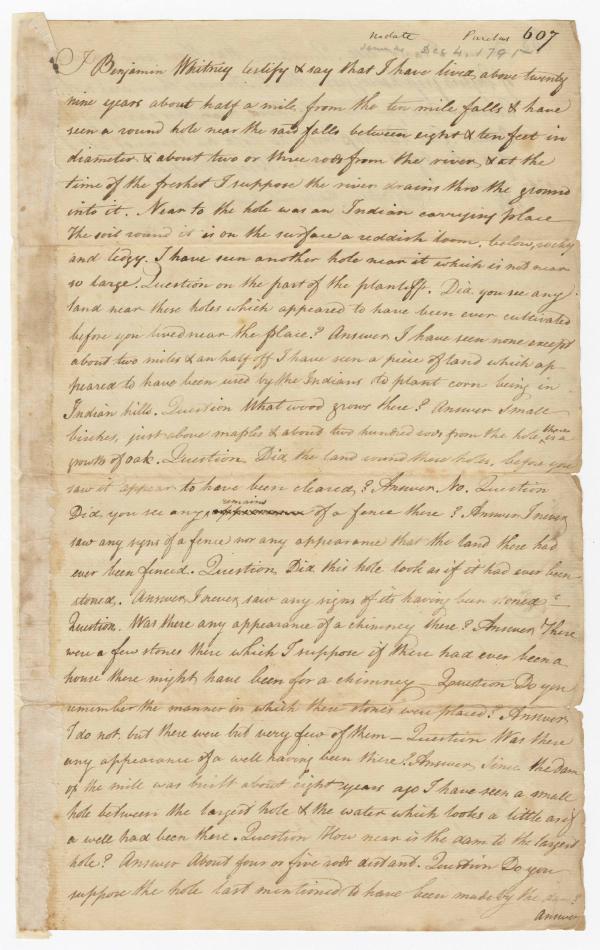 no date Parcelus 607
same as Dec 4. 1795
I Benjamin Whitney testify & say that I have lived above twenty
nine years about half a mile from the ten mile falls & have
seen a round hole near the said falls between eight & ten feet in
diameter & about two or three rods from the river, & at the
time of the freshet I suppose the river drains thro the ground
into it. Near to the hole was an Indian carrying place
The soil round it is on the surface a reddish loam, below, rocky
and ledgy. I have seen another hole near it which is not near
so large. Question on the part of the plantiff. Did you see any
land near these holes which appeared to have been ever cultivated
before you lived near the place? Answer I have seen none except
about two miles & an half off I have seen a piece of land which ap
peared to have been used by the Indians to plant corn being in
Indian hills. Question What wood grows there? Answer Small
birches, just above maples & about two hundred rods from the hole there is a
growth of oak. Question Did the land round these holes, before you
saw it appear to have been cleared? Answer. No. Question
Did you see any remains of a fence there? Answer I never
saw any signs of a fence nor any appearance that the land there had
ever been fenced. Question Did this hole look as if it had ever been
stoned. Answer I never saw any signs of its having been stoned.
Question. Was there any appearance of a chimney there? Answer There
were a few stones there which I suppose if there had ever been a
house there might have been for a chimney — Question Do you
remember the manner in which these stones were placed? Answer
I do not, but there were but very few of them — Question Was there
any appearance of a well having been there? Answer Since the dam
of the mill was built about eight years ago I have seen a small
hole between the largest hole & the water which looks a little as if
a well had been there. Question How near is the dam to the largest
hole? Answer About four or five rods distant. Question Do you
suppose the hole last mentioned to have been made by the dam?
Answer